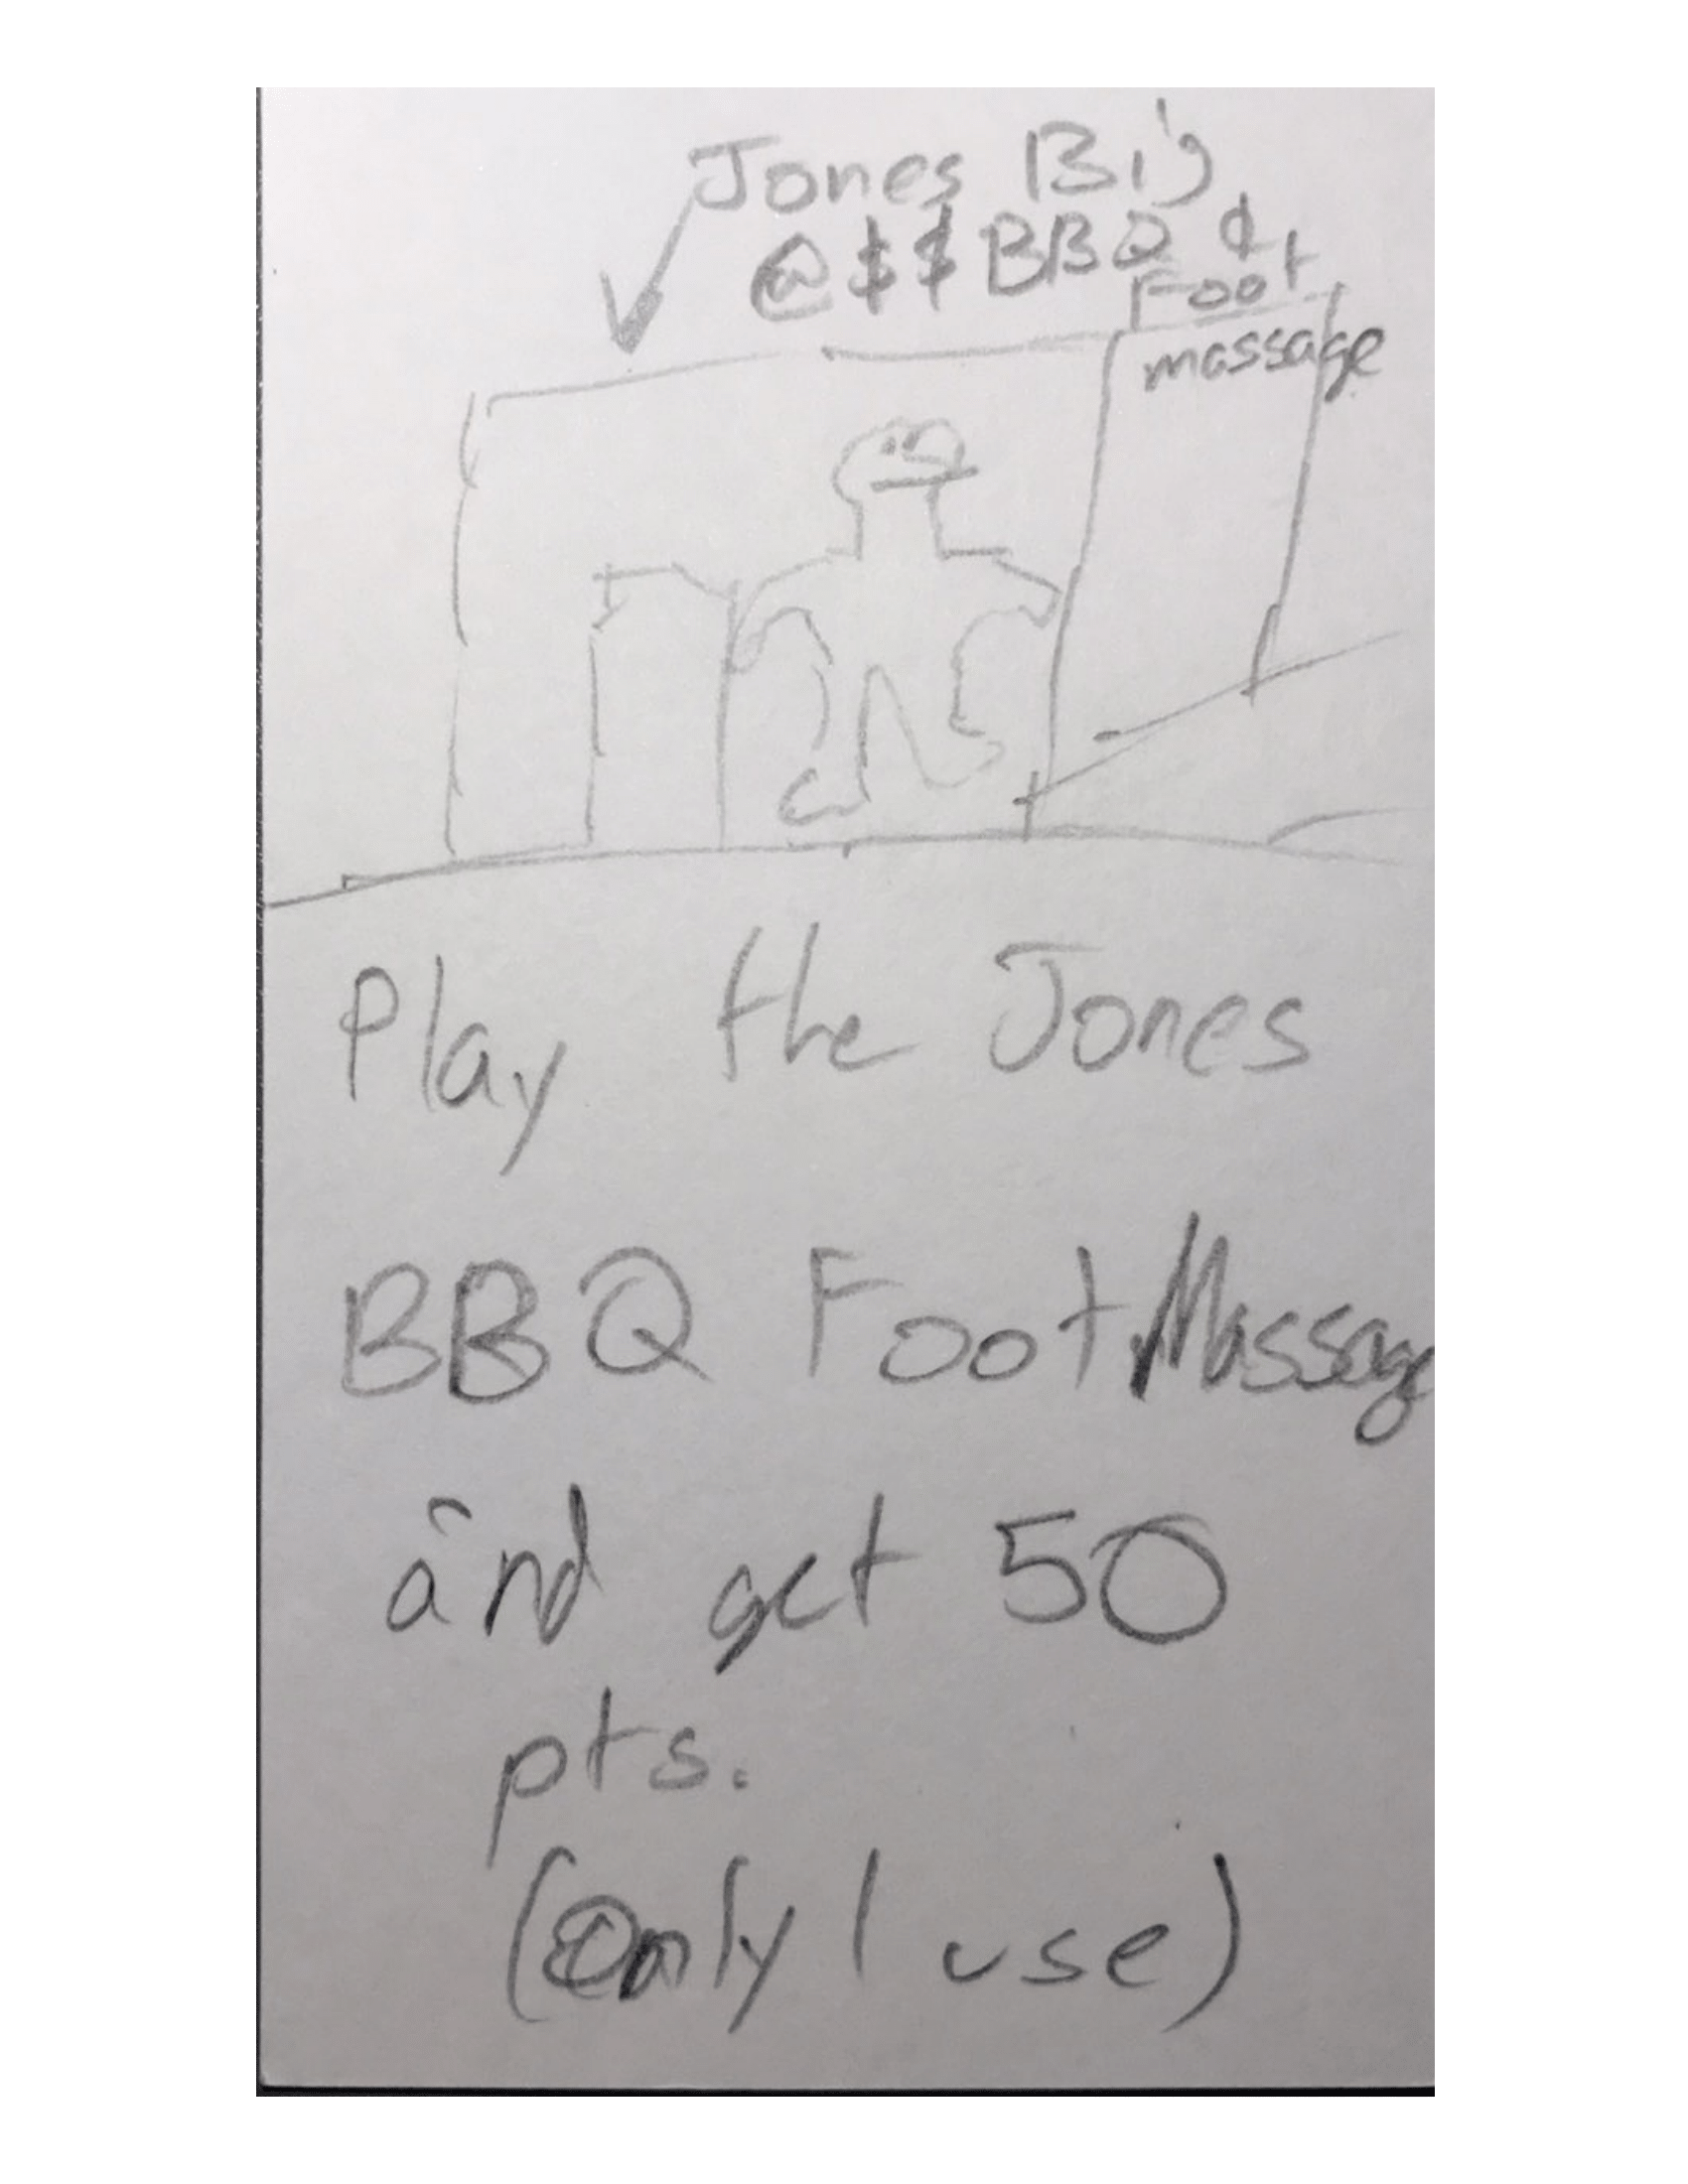 Jones Big
@$$ BBQ &
Foot
massage
Play the Jones
BBQ Foot Massage
and get 50
pts.
(Only 1 use)